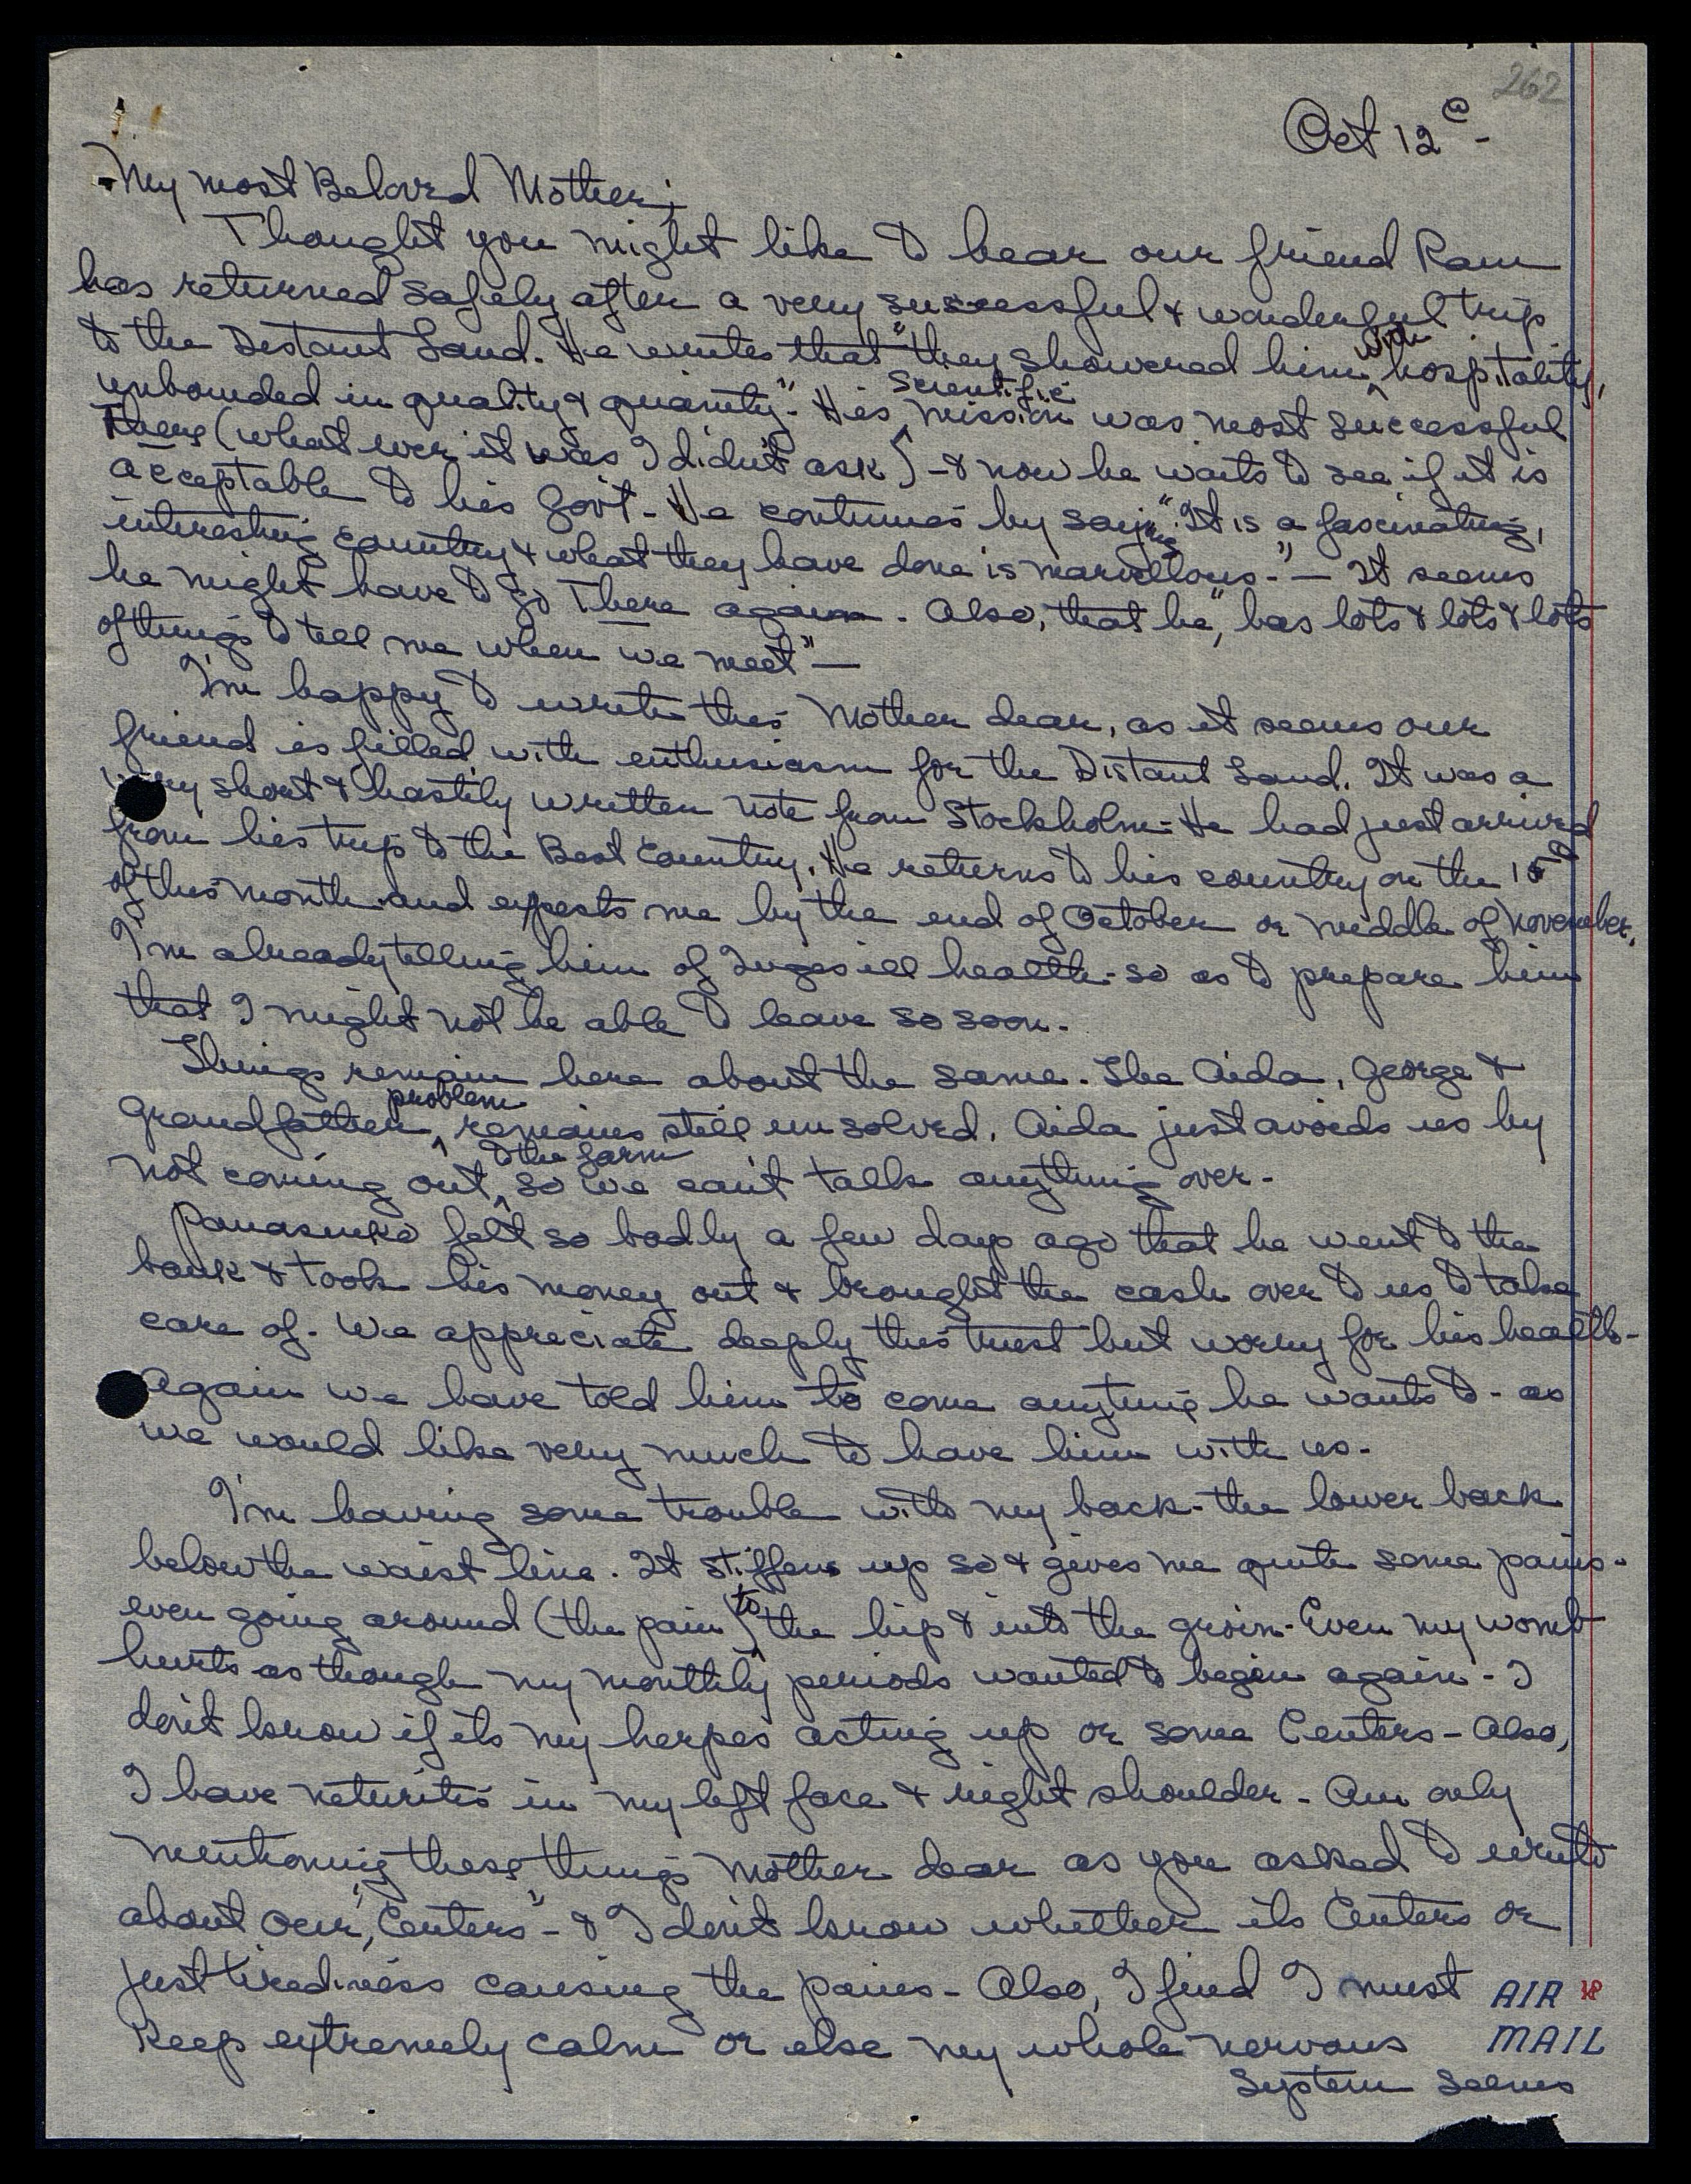 262
Oct 12
My most Beloved Mother;
Thought you might like to hear our friend Ram
has returned safely after a very successful & wonderful trip
to the Distant Land. He writes that "they showered him with hospitality,
unbounded in quality & quantity." His scientific mission was most successful
There (what ever it was I didn't ask) - & now he waits to see if it is
acceptable to his Gov't - He continues by saying "It is a fascinating,
interesting country & what they have done is marvellous." - It seems
he might have to go There again. Also, that he, "has lots & lots & lots
of things to tell me when we meet" -
I'm happy to write this Mother dear, as it seems our
friend is filled with enthusiasm for the Distant Land. It was a
very short & hastily written note from Stockholm - He had just arrived
from his trip to the Best Country. He returns to his country on the 15
of this month and expects me by the end of October or middle of November.
I'm already telling him of Inges ill health - so as to prepare him
that I might not be able to leave so soon.
Things remain here about the same. The Aida, George &
Grandfather problem remains still unsolved. Aida just avoids us by
not coming out to the farm so we can't talk anything over -
Panasenko felt so badly a few days ago that he went to the
bank & took his money out & brought the cash over to us to take
care of. We appreciate deeply this trust but worry for his health -
Again we have told him to come anytime he wants to - as
we would like very much to have him with us -
I'm having some trouble with my back - the lower back
below the waist line. It stiffens up so & gives me quite some pains -
even going around (the pain) to the hip & into the groin - Even my womb
hurts as though my monthly periods wanted to begin again - I
don't know if its my herpes acting up or some Centers - Also,
I have neturitis in my left face & right shoulder - Am only
mentioning these things Mother dear as you asked to write
about our "Centers" - & I don't know whether its Centers or
just tiredness causing the pains - Also, I find I must
keep extremely calm or else my whole nervous
system seems
AIR
MAIL